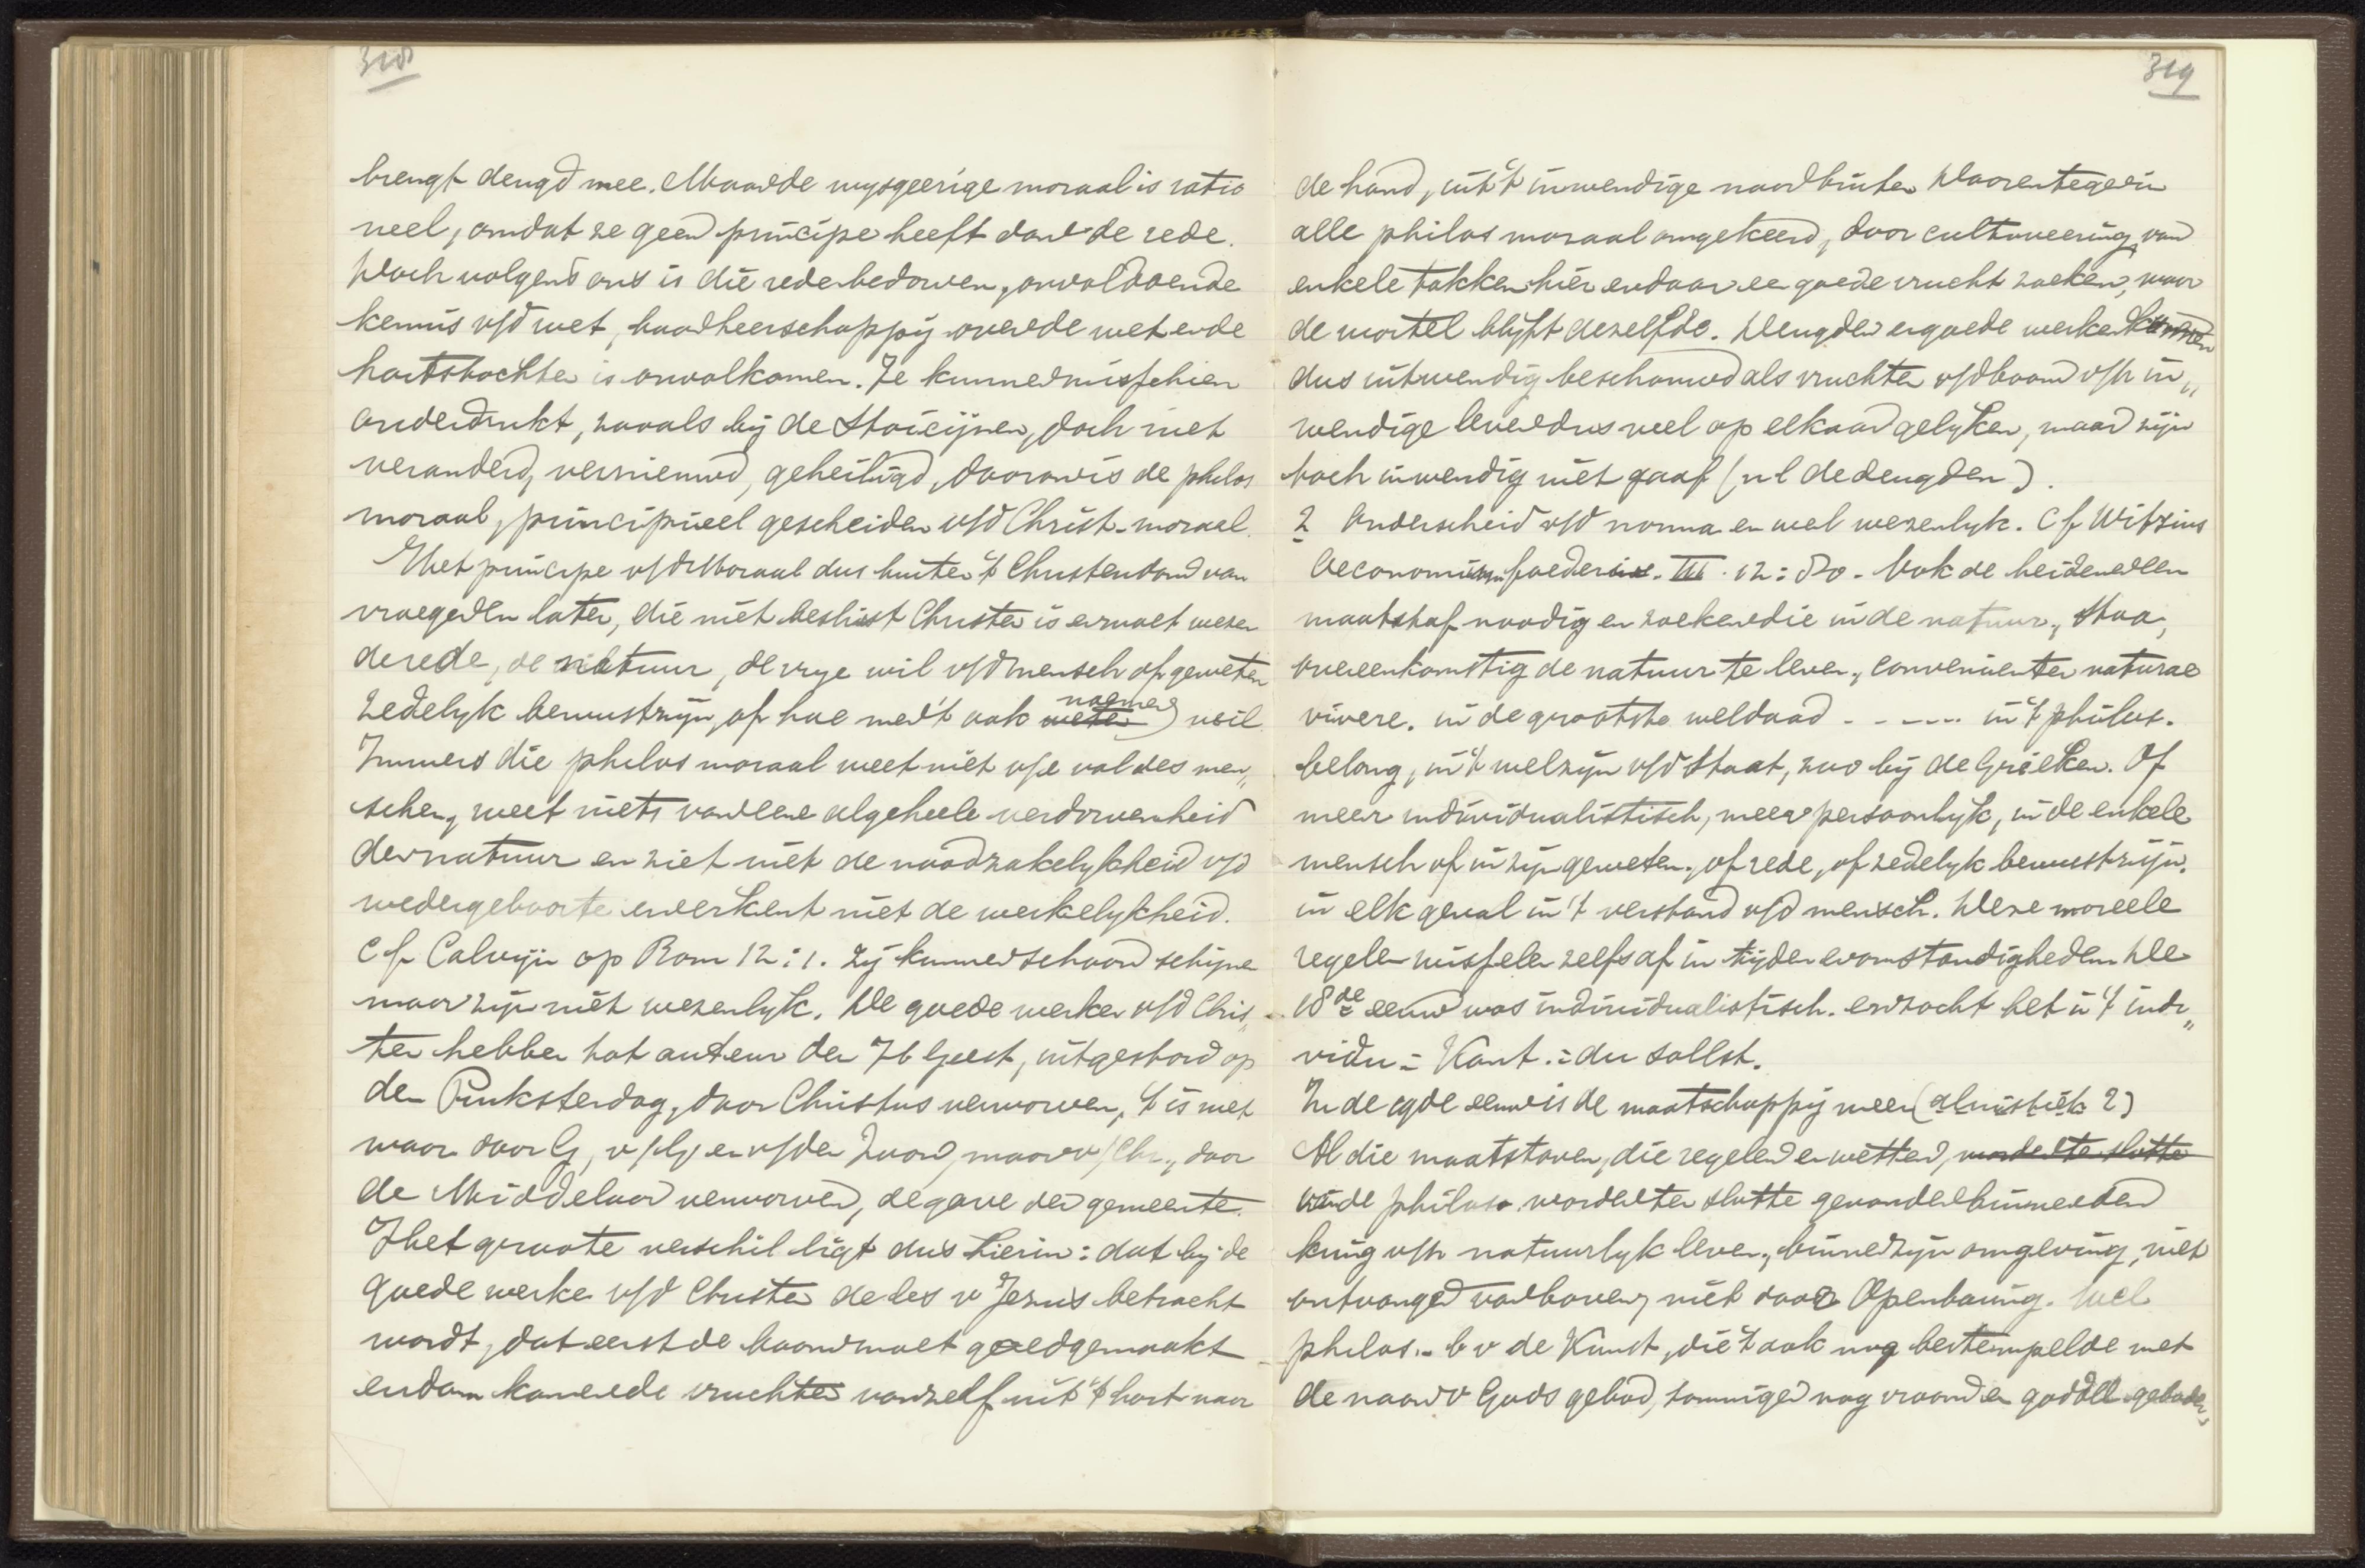 318
brengt deugd mee. Maar de wysgeerige moraal is ratio
neel, omdat ze geen principe heeft dan de rede.
Doch volgens ons is die rede bedorven, onvoldoende
kennis v/d wet, haar heerschappij over de wet en de
hartstochten is onvolkomen. Ze kunnen misschien
onderdrukt, zooals bij de Stoicijnen, doch niet
veranderd, vernieuwd, geheiligd, daarom is de philos
moraal, principieel gescheiden v/d Christ. moraal.
Het principe v/d Moraal dus buiten 't Christendom van
vroeger en later, die niet beslist Christen is en moet wezen
de rede, de natuur, de vrye wil v/d mensch of geweten
zedelyk bewustzijn, of hoe men 't ook weten noemen wil.
Immers die philos moraal weet niet v/e val des men„
schen, weet niets van eene algeheele verdorvenheid
der natuur en ziet niet de noodzakelykheid v/d
wedergeboorte en erkent niet de werkelykheid.
Cf Calvijn op Rom 12:1. Zij kunnen schoon schijnen
maar zijn niet wezenlyk. De goede werken v/d Chris„
ten hebben tot auteur den H. Geest, uitgestort op
den Pinksterdag, door Christus verworven, 't is niet
waar door G, v/G en v/den Zoon, maar v/Chr., door
de Middelaar verworven, de gave der gemeente.
Het groote verschil ligt dus hierin: dat bij de
goede werken v/d Christen de les v Jezus betracht
wordt, dat eerst de boom moet goed gemaakt
en dan komen de vruchten vanzelf uit 't hart naar
319
de hand, uit 't inwendige naar buiten Daarentegen
alle philos moraal omgekeerd, door cultiveering van
enkele takken hier en daar een goede vrucht zoeken, maar
de wortel blijft dezelfde. Deugden en goede werken kunnen
dus uitwendig beschouwd als vruchten v/d boom v/h in„
wendige leven dus veel op elkaar gelyken, maar zijn
toch inwendig niet gaaf (nl de deugden).
2 Onderscheid v/d norma en wel wezenlyk. Cf Witsius
Oeconomia foederis. III. 12:80. Ook de heidenen
maatstaf noodig en zoeken die in de natuur, Stoa,
overeenkomstig de natuur te leven, convenienter naturae
vivere. in de grootste weldaad - - - - - in 't philos.
belang, in 't welzijn v/d Staat, zoo bij de Grieken. Of
meer individualistisch, meer persoonlyk, in de enkele
mensch of in zijn geweten, of rede, of zedelyk bewustzijn.
in elk geval in 't verstand v/d mensch. Deze moreele
regelen wisselen zelfs af in tijden en omstandigheden. De
18de eeuw was individualistisch. en zocht het in 't indi„
vidu = Kant. : du sollst.
In de 19de eeuw is de maatschappij meer (altruistiek?)
Al die maatstaven, die regelen en wetten, worden ten slotte
in de philoso. worden ten slotte gevonden binnen den
kring v/h natuurlyk leven, binnen zijn omgeving, niet
ontvangen van boven, niet door Openbaring. Wel
philos. - b v de Kunst, die 't ook nog bestempelde met
de naam v Gods gebod, sommigen nog vroom en godd. geboden,